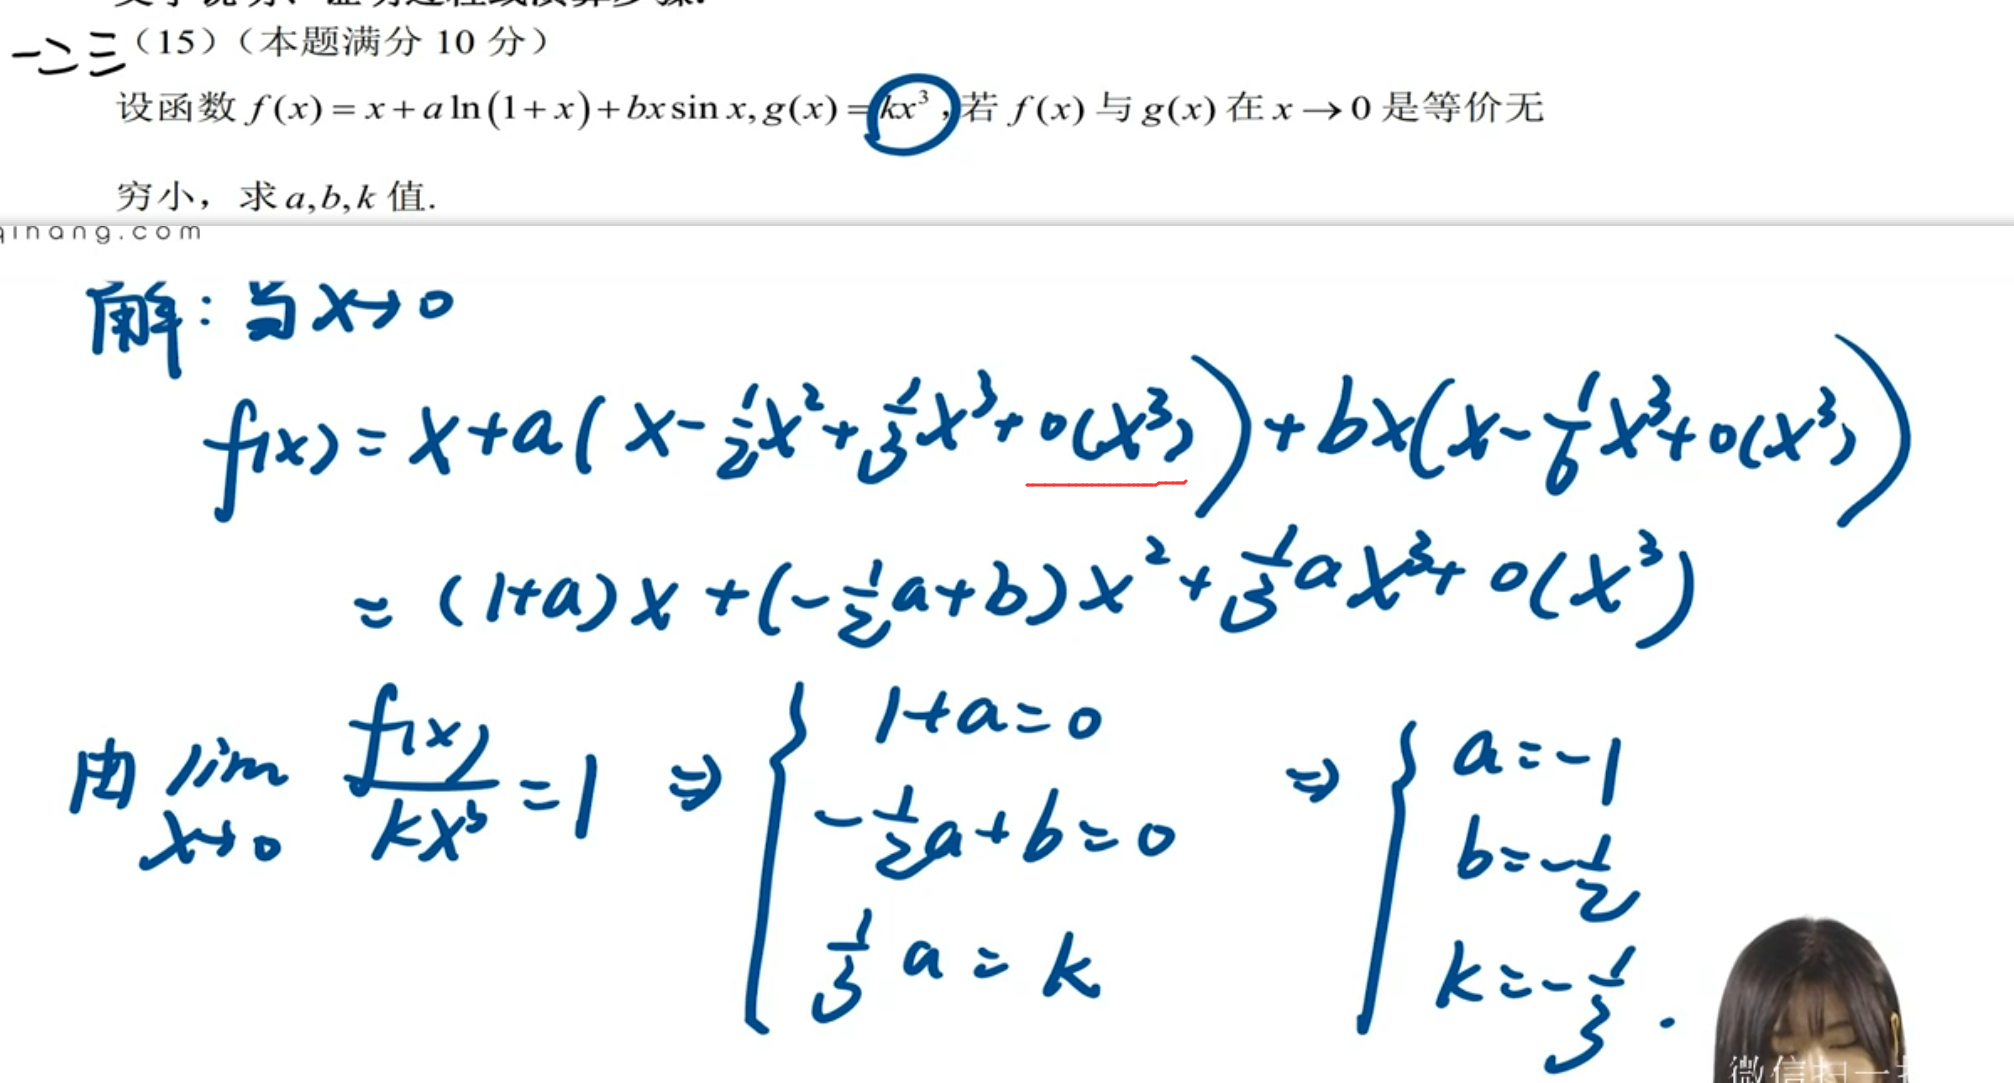 一二三（15）（本题满分 10 分）
设函数 f(x) = x + a ln(1 + x) + bx sin x, g(x) = kx³，若 f(x) 与 g(x) 在 x → 0 是等价无
穷小，求 a, b, k 值.
qihang.com
解：当 x→0
f(x) = x + a( x - 1/2 x² + 1/3 x³ + o(x³) ) + bx( x - 1/6 x³ + o(x³) )
= (1+a)x + (-1/2 a + b)x² + 1/3 a x³ + o(x³)
由 lim x→0 f(x)/kx³ = 1 ⇒ { 1+a=0 ⇒ { a=-1
-1/2 a + b = 0 b=-1/2
1/3 a = k k=-1/3 .
微信扫一